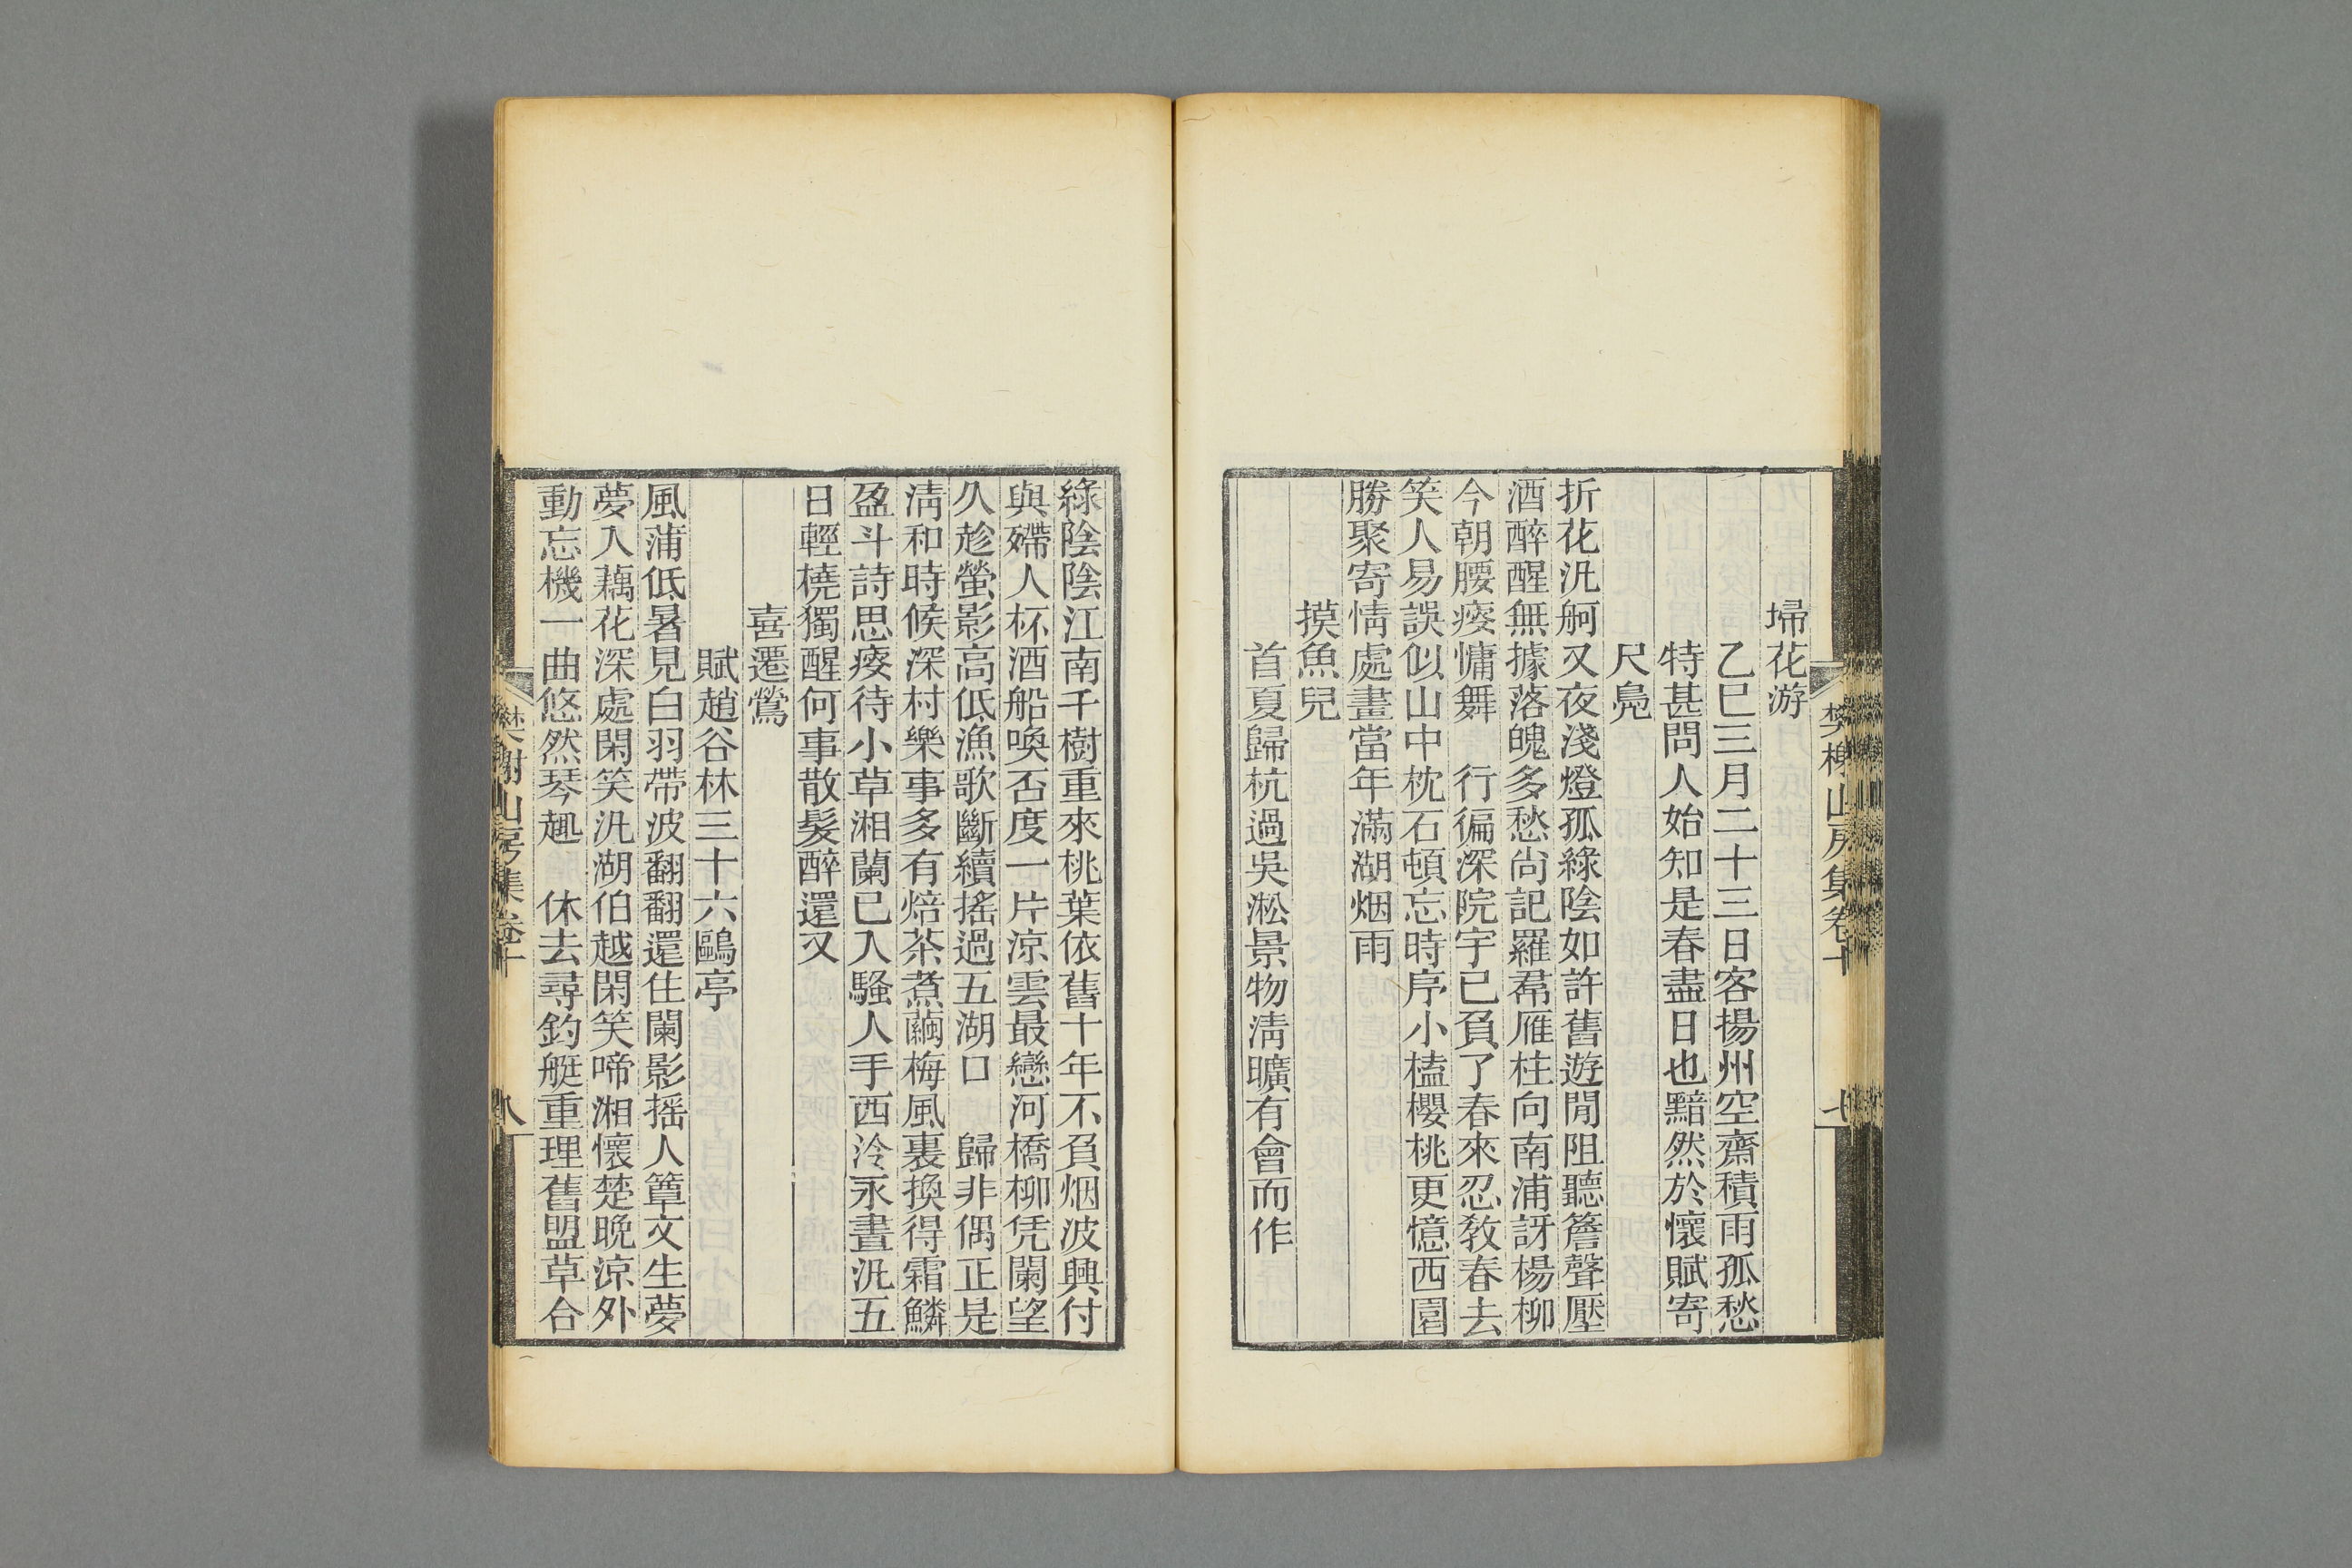 樊榭山房集卷十
七
埽花游
乙巳三月二十三日客揚州空齋積雨孤愁
特甚問人始知是春盡日也黯然於懷賦寄
尺鳧
折花汎舸又夜淺燈孤綠陰如許舊遊閒阻聽簷聲壓
酒醉醒無據落魄多愁尙記羅帬雁柱向南浦訝楊柳
今朝腰瘘慵舞　行徧深院宇已負了春來忍敎春去
笑人易誤似山中枕石頓忘時序小榼櫻桃更憶西園
勝聚寄情處畫當年滿湖烟雨
摸魚兒
首夏歸杭過吳淞景物淸曠有會而作
綠陰陰江南千樹重來桃葉依舊十年不負烟波興付
與殢人杯酒船喚否度一片涼雲最戀河橋柳凭闌望
久趁螢影高低漁歌斷續搖過五湖口　歸非偶正是
淸和時候深村樂事多有焙茶煮繭梅風裏換得霜鱗
盈斗詩思瘘待小草湘蘭已入騷人手西泠永晝汎五
日輕橈獨醒何事散髮醉還又
喜遷鶯
賦趙谷林三十六鷗亭
風蒲低暑見白羽帶波翻翻還住闌影搖人簟文生夢
夢入藕花深處閑笑汎湖伯越閑笑啼湘懷楚晚涼外
動忘機一曲悠然琴趣　休去尋釣艇重理舊盟草合
樊榭山房集卷十
八